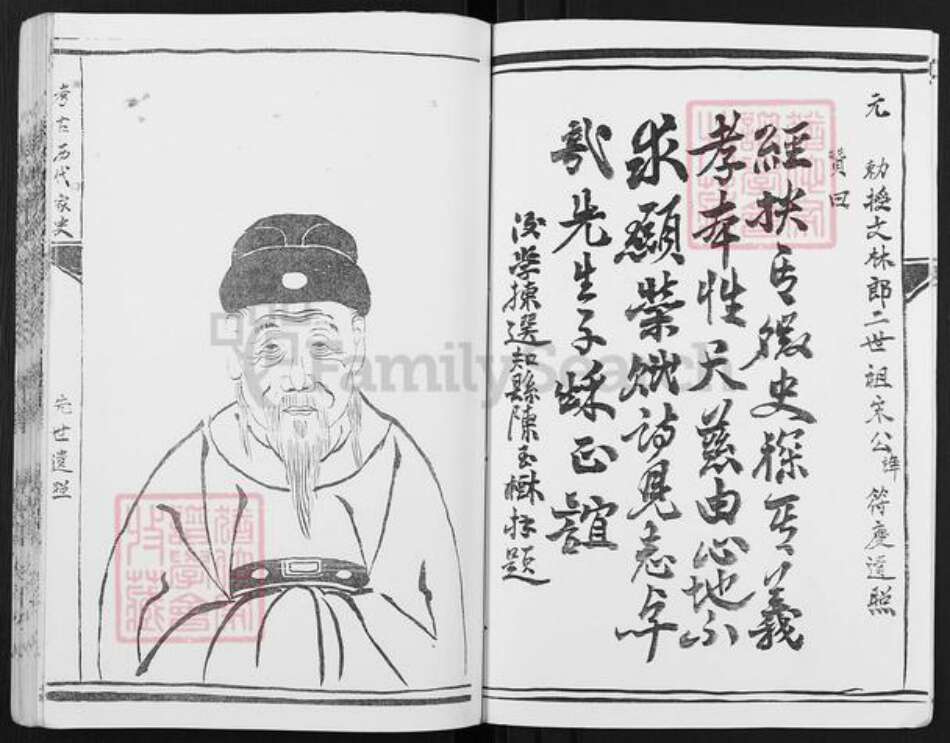 元 勅授文林郎二世祖宋公諱符慶遺照
贊曰
經挾百緞史探百義
孝本性天慈由心地不
求顯榮賦詩見志卓
哉先生子孫正誼
後學揀選知縣陳玉樹拜題
考古历代家史
元世遺照
FamilySearch